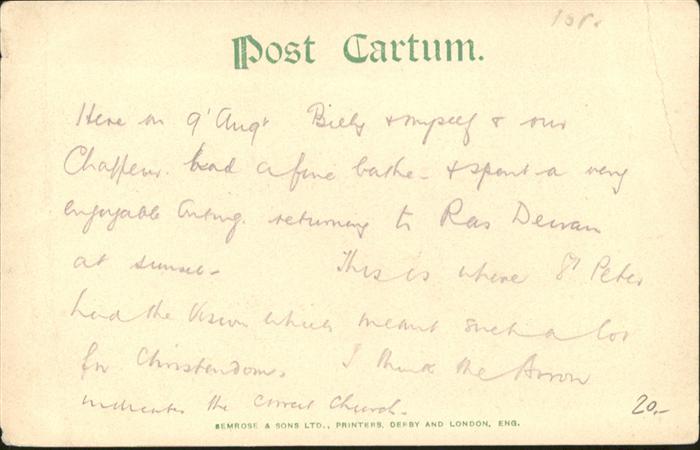 Post Cartum.
Here on 9' Augt Billy & myself & our
Chaffeur. had a fine bathe - & spent a very
enjoyable outing. returning to Ras Deiran
at sunset - This is where St Peter
had the Vision which meant such a lot
for Christendom. I think the Arrow
indicates the correct Church.
20.-
BEMROSE & SONS LTD., PRINTERS, DERBY AND LONDON, ENG.